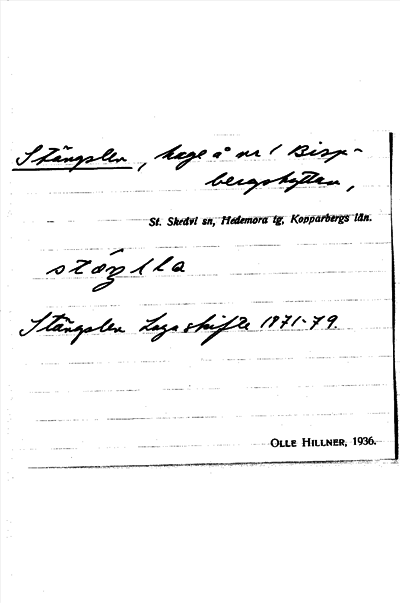 Stängslen, hage å nr 1 Bisp-
bergshyttan,
St. Skedvi sn, Hedemora tg, Kopparbergs län.
Stängslen Laga skifte 1871-79.
OLLE HILLNER, 1936.